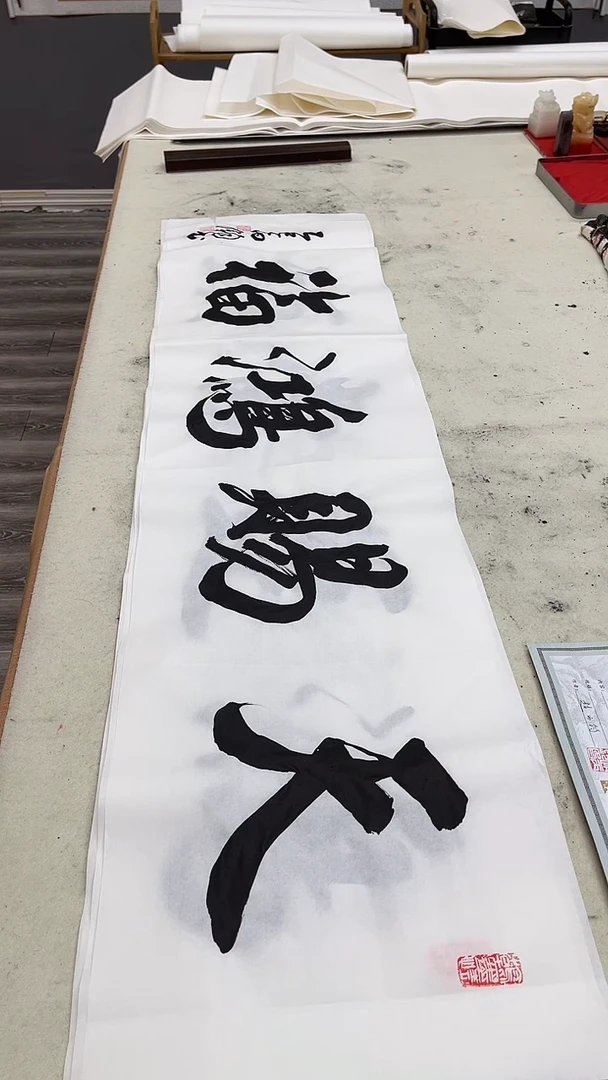 天賜鴻福